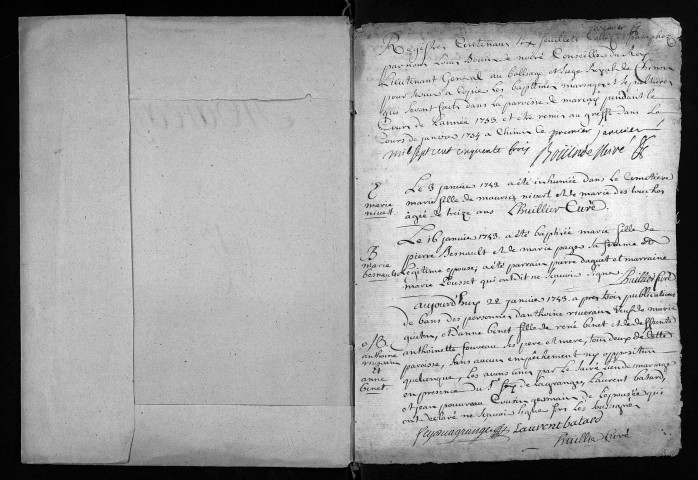 premier
Registre Contenant six feuillets Cottés et paraphez
par nous Louis Bouin de noiré Conseiller du Roy
Lieutenant General au balliage et siege Royal de Chinon
pour servir a Copie les baptêmes mariages et sepultures
qui seront faits dans la parroisse de marçay pendant le
Cours de L'année 1753. et être remis au greffe dans Le
Cours de janvier 1754 a Chinon Ce premier janvier
mil sept cent cinquante trois Bouin de Noiré
S
marie
nivert
Le 3 janvier 1753 a été inhumée dans Le Cemetiere
marie fille de maurice nivert et de marie des touches
âgée de treize ans Lhuillier Curé
B
marie
besnault
Le 16 janvier 1753. a été baptisée marie fille de
pierre Besnault et de marie page sa femme et
Legitime epouse, a été parrain pierre daguet et marraine
marie Lousset qui ont dit ne sçavoir signer Lhuillier Curé
aujourd'huy 22 janvier 1753. apres trois publications
de bans des personnes d'anthoine
et d'anne binet fille de rené binet et de deffunte
anthoinette foureau ses pere et mere, tous deux de Cette
paroisse, sans aucun empêchement ny opposition
quelconque, Les avons unis par Le Sacré Lien de mariage
en presence du Sr de Lagrange, Laurent batard,
et jean Cousin germain de L'epousée qui
ont declaré ne sçavoir signer fors Les soussignés
M
anthoine
et
anne
binet
Laurent batard
Lhuillier Curé